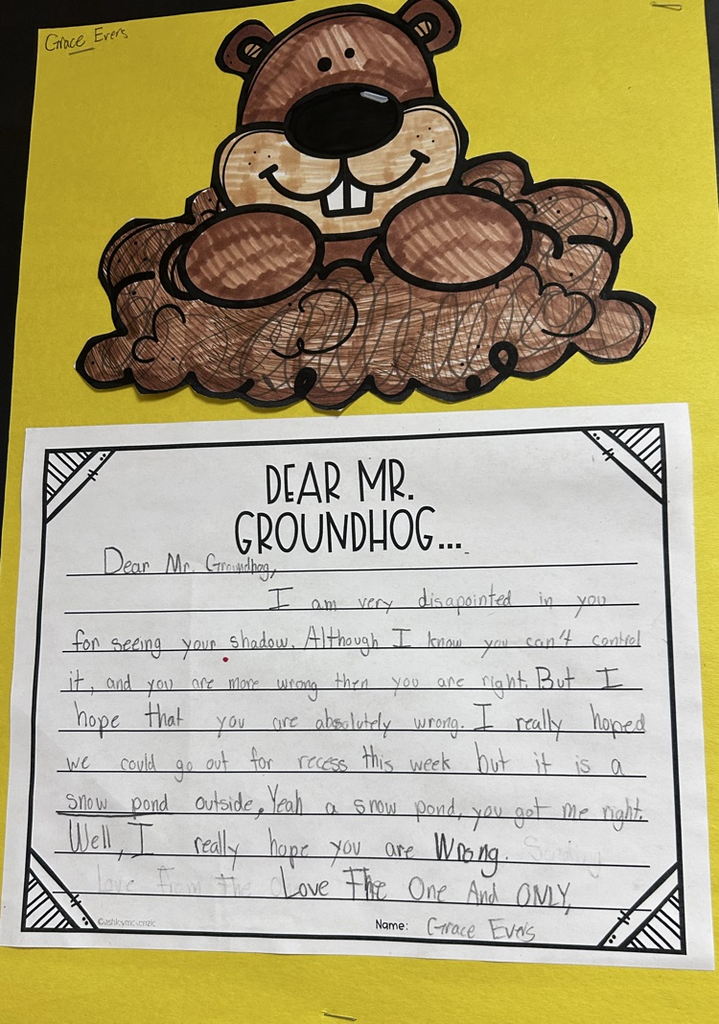 Grace Evers
DEAR MR.
GROUNDHOG...
Dear Mr. Groundhog,
I am very disapointed in you
for seeing your shadow. Although I know you can't control
it, and you are more wrong then you are right. But I
hope that you are absolutely wrong. I really hoped
we could go out for recess this week but it is a
snow pond outside, Yeah a snow pond, you got me right.
Well, I really hope you are Wrong.
Love The One And ONLY,
Name: Grace Evers